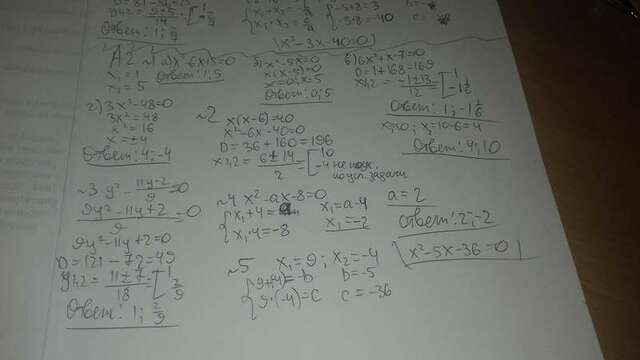 Ответ: 1; 
x²-3x-40=0
A2
~1 а) x²-6x+5=0
x₁=1
x₂=5
Ответ: 1; 5
б) x²-5x=0
x(x-5)=0
x=0; x=5
Ответ: 0; 5
в) 6x²+x-7=0
D=1+168=169
x₁,₂ = (-1±13)/12 = [1; -1 1/6
Ответ: 1; -1 1/6
г) 3x²-48=0
3x²=48
x²=16
x=±4
Ответ: 4; -4
~2 x(x-6)=40
x²-6x-40=0
D=36+160=196
x₁,₂ = (6±14)/2 = [10; -4 не подх. по усл. задачи
x₁=10; x₂=10-6=4
Ответ: 4; 10
~3 y² - (11y-2)/9 = 0
(9y²-11y+2)/9 = 0
9y²-11y+2=0
D=121-72=49
y₁,₂ = (11±7)/18 = [1; 2/9
Ответ: 1; 2/9
~4 x²-ax-8=0
x₁+4=a
x₁·4=-8
x₁=a-4
x₁=-2
a=2
Ответ: 2; -2
~5 x₁=9; x₂=-4
9+(-4)=-b
9·(-4)=c
b=-5
c=-36
x²-5x-36=0